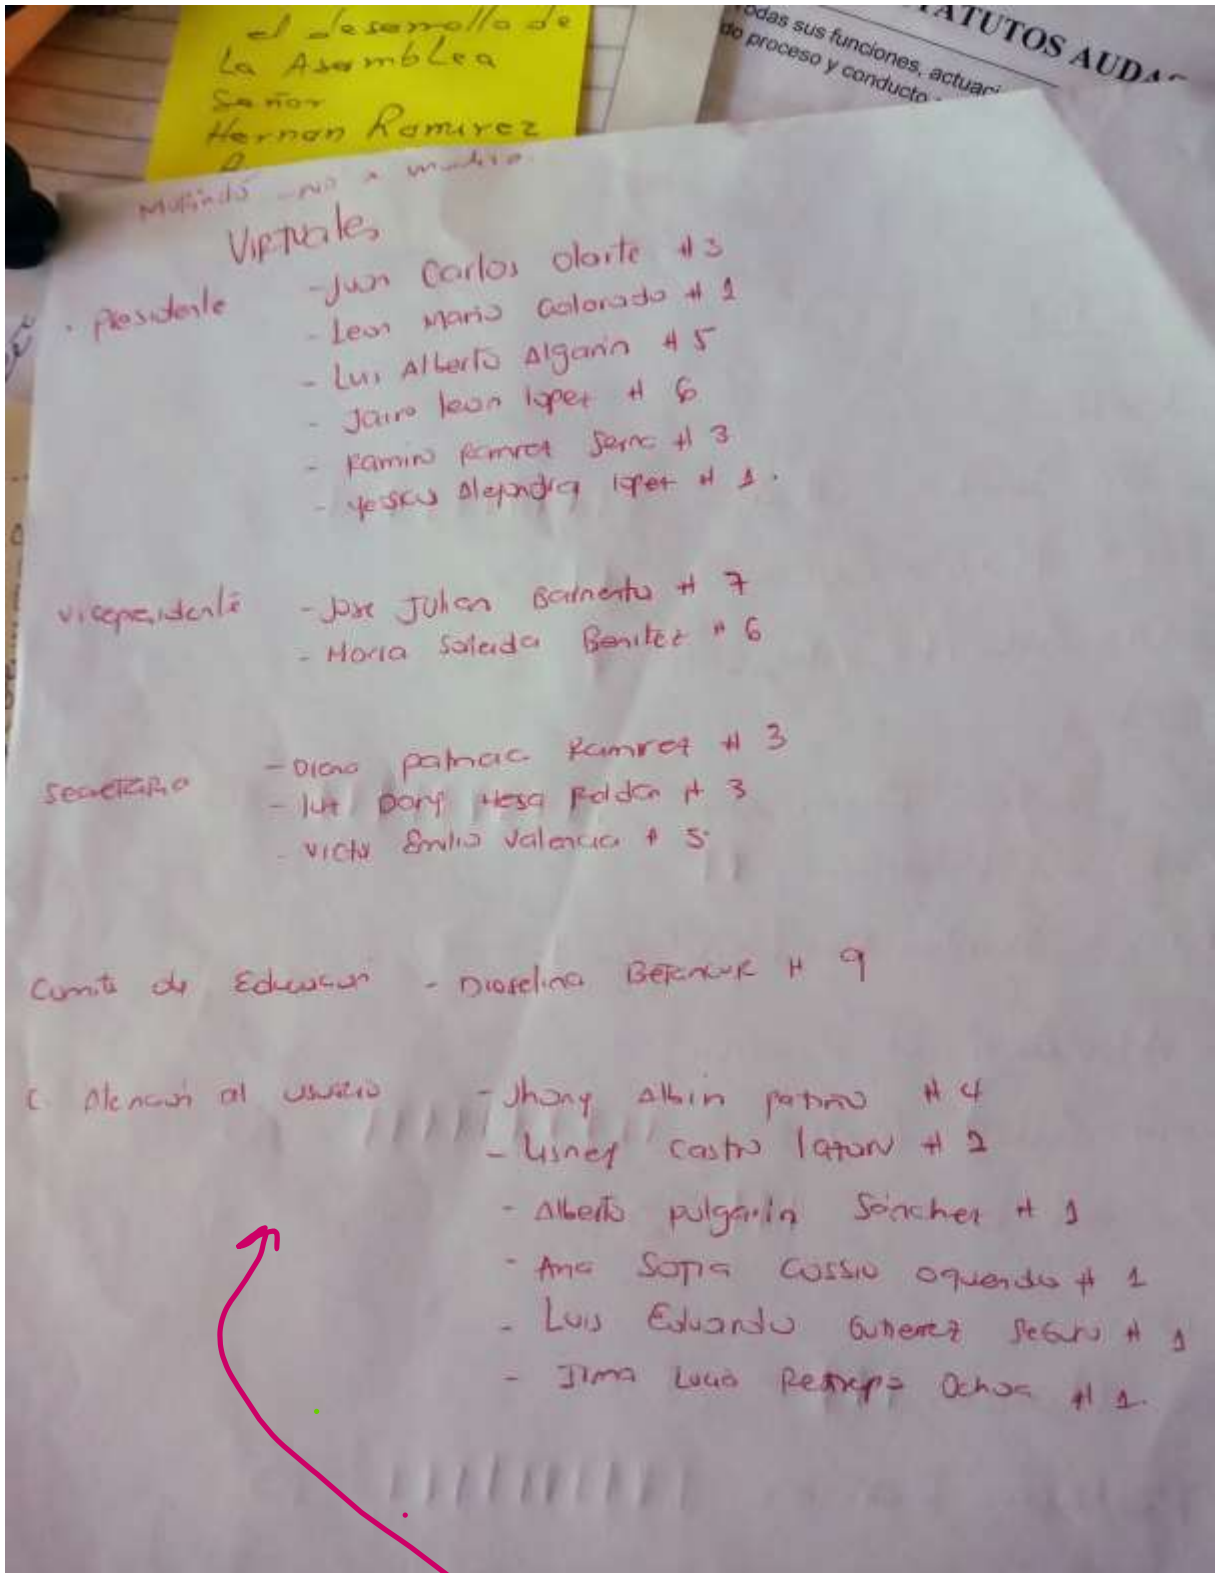 el desarrollo de
La Asamblea
Señor
Hernan Ramirez
TATUTOS AUDA
odas sus funciones, actuaci
do proceso y conducto
no a
Virtuales
. Presidente
- Juan Carlos Olarte # 3
- Leon Mario Colorado # 1
- Luis Alberto Algarin # 5
- Jairo leon lopez # 6
- Ramiro Ramirez Serna # 3
- Alejandra lopez # 1.
Vicepresidente
- Jose Julian # 7
- Maria Benitez # 6
Secretario
- Diana Patricia Ramirez # 3
- luz Dary Mesa Roldan # 3
- Victor Emilio Valencia # 5
Comite de Educacion - Dioselina Betancur # 9
C. Atencion al usuario
- Jhony Albin patiño # 4
- Castro # 2
- Alberto pulgarin Sanchez # 1
- Ana Sofia Cossio oquendo # 1
- Luis Eduardo Gutierrez Seguro # 1
- Lucia Restrepo Ochoa # 1.